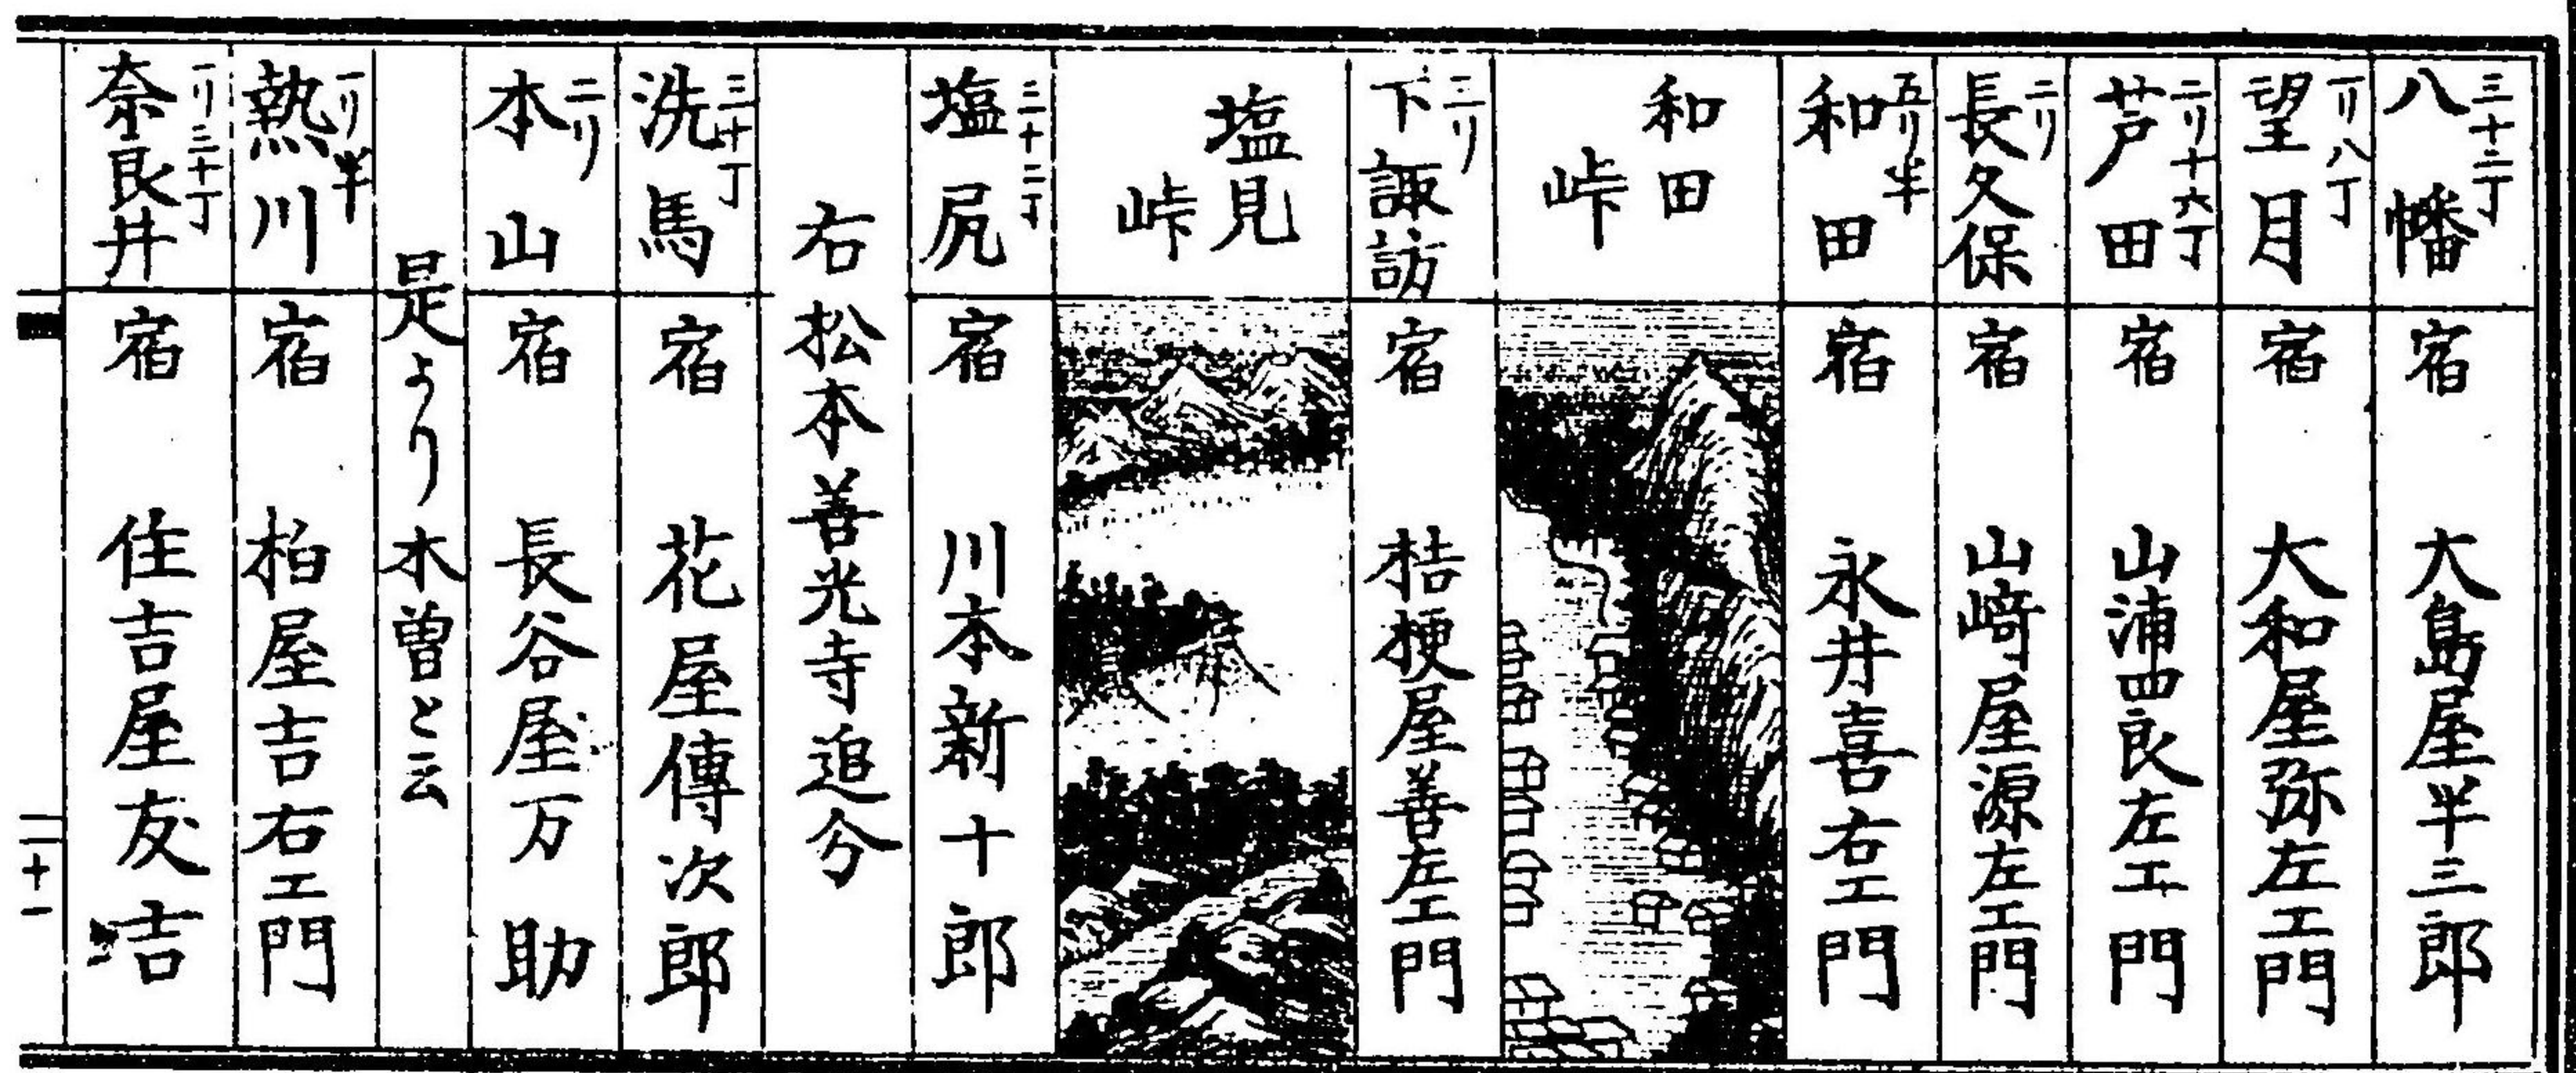 三十二丁
八幡 宿 大島屋半三郎
一リ八丁
望月 宿 大和屋弥左エ門
二リ十六丁
芦田 宿 山浦四良左エ門
二リ
長久保 宿 山﨑屋源左エ門
五リ半
和田 宿 永井喜右エ門
和田
峠
三リ
下諏訪 宿 桔梗屋善左エ門
塩見
峠
三十二丁
塩尻 宿 川本新十郎
右松本善光寺追分
三十丁
洗馬 宿 花屋傳次郎
二リ
本山 宿 長谷屋万助
是より木曽と云
一リ半
熱川 宿 柏屋吉右エ門
一リ三十丁
奈良井 宿 住吉屋友吉
二十一